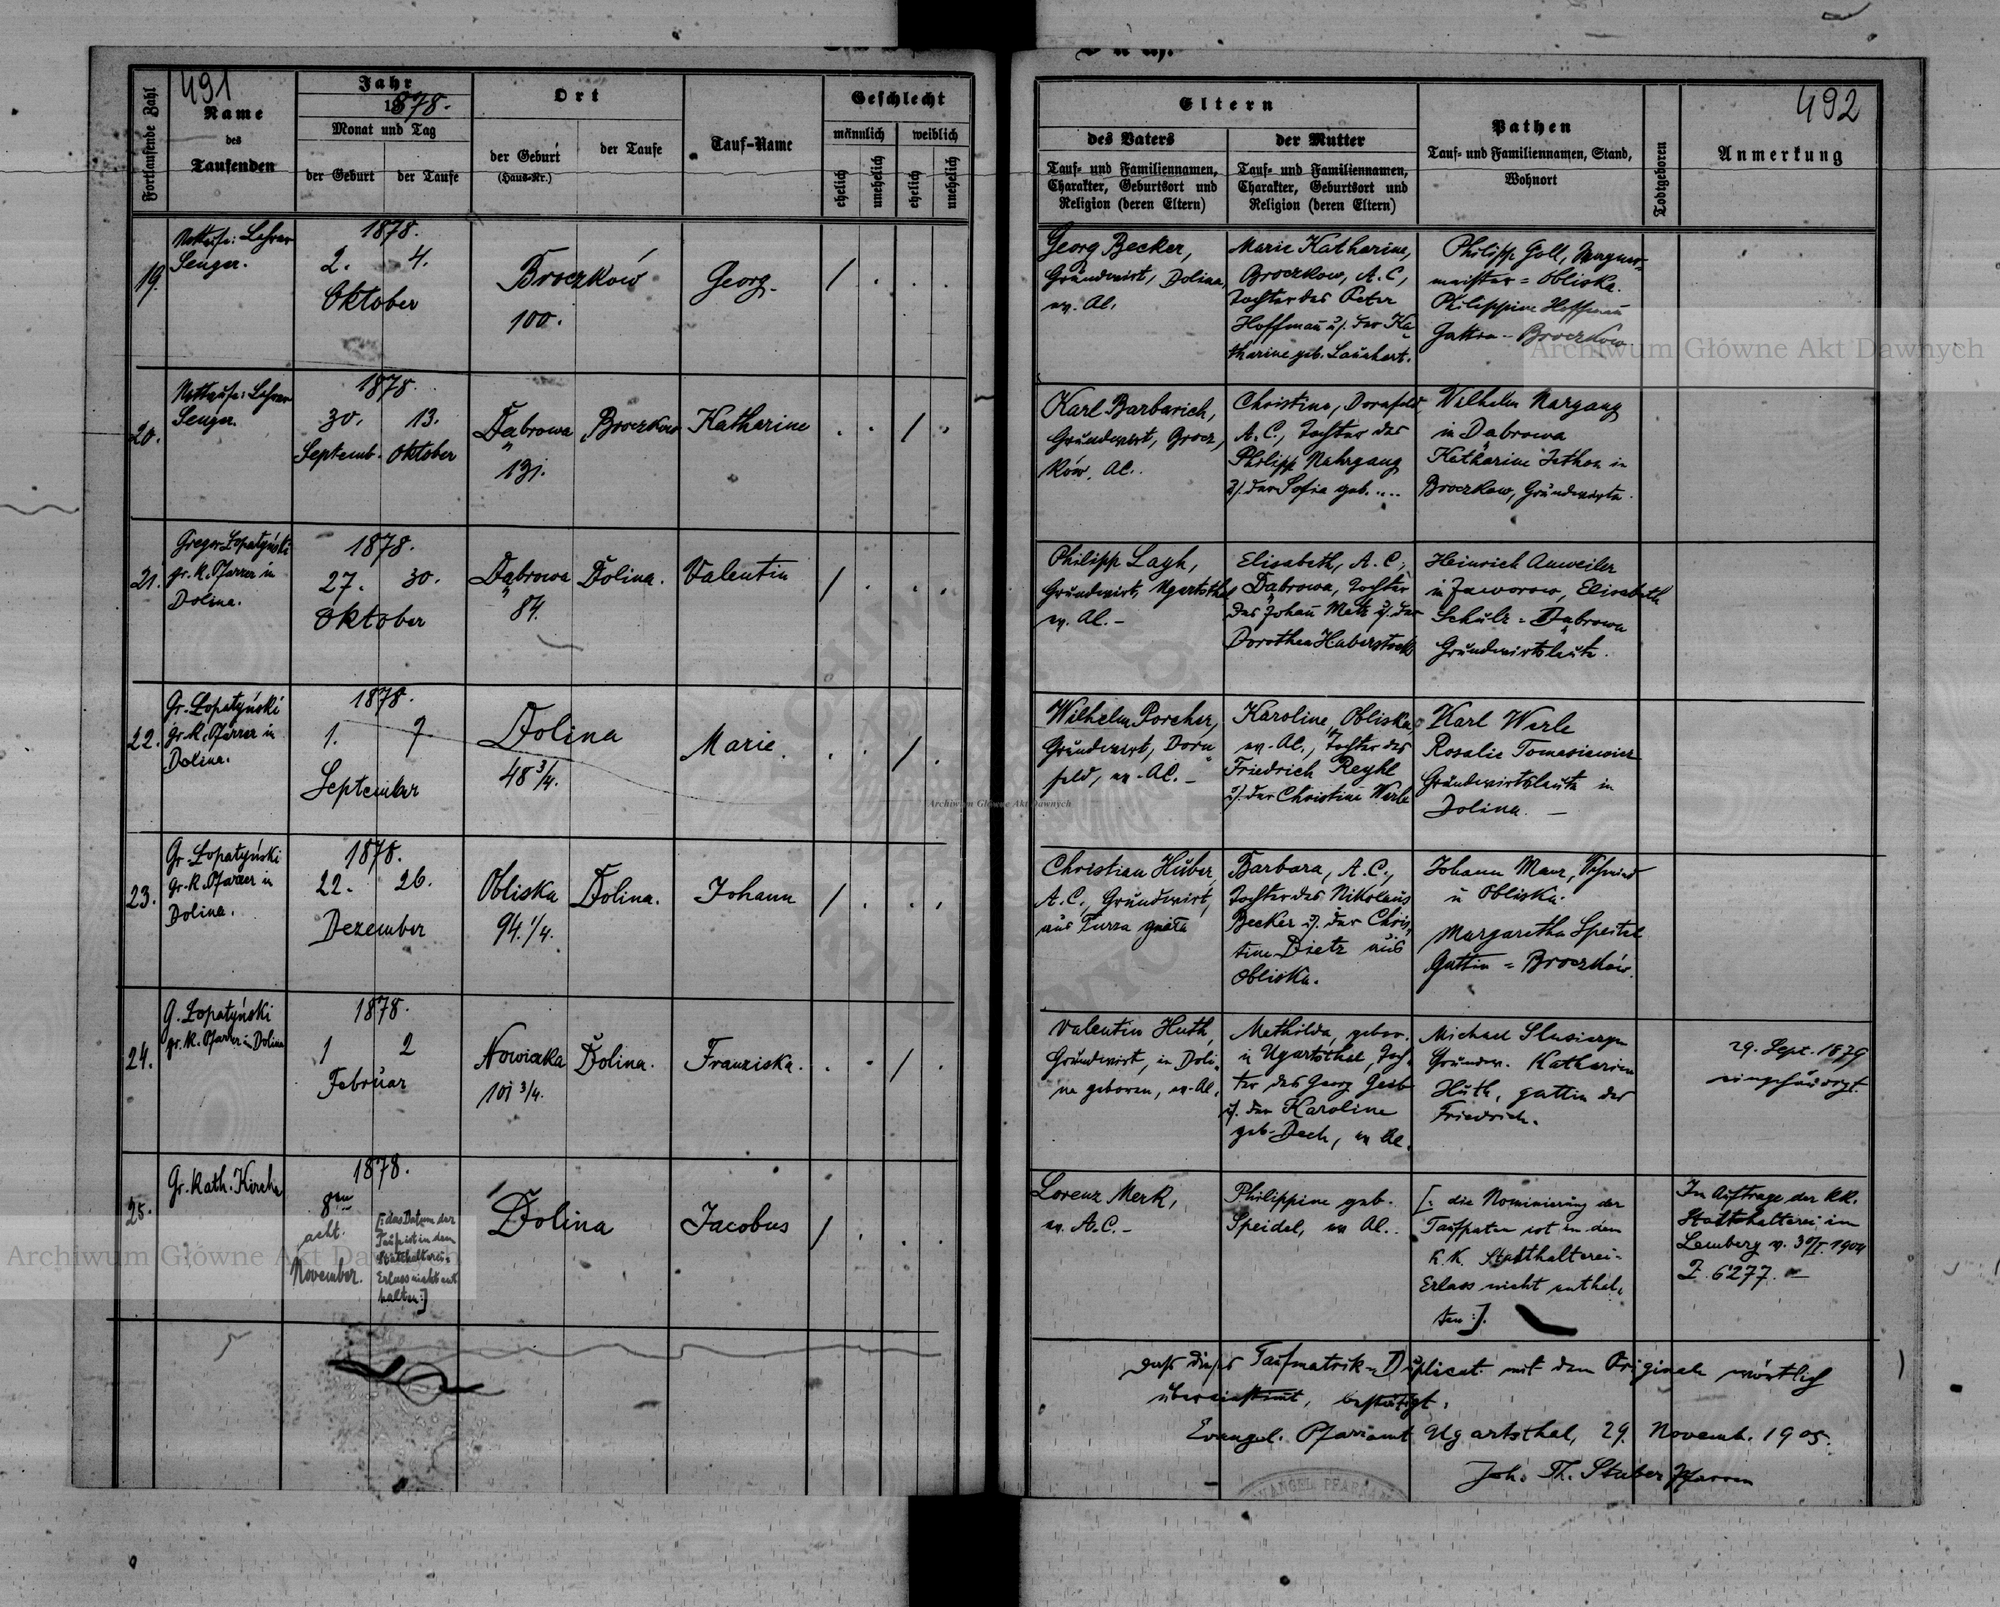 491
Fortlaufende Zahl
Name
des
Taufenden
Jahr
1878.
Monat und Tag
der Geburt
der Taufe
Ort
der Geburt
(Haus-Nr.)
der Taufe
Tauf-Name
Geschlecht
männlich
weiblich
ehelich
unehelich
ehelich
unehelich
19.
Nottaufe: Lehrer
Senger.
1878.
2. 4.
Oktober
Broczków
100.
Georg.
20.
Nottaufe: Lehrer
Senger.
1878.
30. 13.
Septemb. Oktober
Dąbrowa Broczkow
131.
Katharine
21.
Gregor Łopatyński
gr. k. Pfarrer in
Dolina.
1878.
27. 30.
Oktober
Dąbrowa Dolina.
84.
Valentin
22.
Gr. Łopatyński
gr. k. Pfarrer in
Dolina.
1878.
1. 7.
September
Dolina
48 3/4.
Marie.
23.
Gr. Łopatyński
gr. k. Pfarrer in
Dolina.
1878.
22. 26.
Dezember
Obliska Dolina.
94. 1/4.
Johann
24.
G. Łopatyński
gr. k. Pfarrer in Dolina
1878.
1 2
Februar
Nowiczka Dolina.
101 3/4.
Franziska.
25.
Gr. Kath. Kirche
1878.
8ten
acht.
November.
[: das Datum der
Taufe ist in dem
Statthalterei-
Erlass nicht ent
halten :]
Dolina
Jacobus
492
Eltern
des Vaters
Tauf- und Familiennamen,
Charakter, Geburtsort und
Religion (deren Eltern)
der Mutter
Tauf- und Familiennamen,
Charakter, Geburtsort und
Religion (deren Eltern)
Pathen
Tauf- und Familiennamen, Stand,
Wohnort
Todtgeboren
Anmerkung
Georg Becker,
Grundwirt, Dolina,
ev. AC.
Marie Katharine,
Broczkow, A. C.,
Tochter des Peter
Hoffmann u. der Ka
tharine geb. Launhart.
Philipp Goll, Wagner-
meister = Obliska.
Philippine Hoffmann
Gattin - Broczkow.
Karl Barbarich,
Grundwirt, Brocz,
ków. AC.
Christine, Dornfeld
A. C., Tochter des
Philipp Nahrgang
u. der Sofia geb. ....
Wilhelm Nargang
in Dąbrowa
Katharine Jethon in
Broczkow, Grundwirte.
Philipp Layh,
Grundwirt, Ugartsthal
ev. AC. -
Elisabeth, A. C.,
Dąbrowa, Tochter
des Johann Metz u. der
Dorothea Haberstock
Heinrich Anweiler
in Jaworow, Elisabeth
Schulz = Dąbrowa
Grundwirtsleute.
Wilhelm Porcher,
Grundwirt, Dorn
feld, ev. AC. -
Karoline, Obliska
ev. AC., Tochter des
Friedrich Reyhl
u. der Christine Werle
Karl Werle
Rosalie Tomasiewicz
Grundwirtsleute in
Dolina. -
Christian Huber,
A. C., Grundwirt,
aus Turza
Barbara, A. C.,
Tochter des Nikolaus
Becker u. der Chris,
tine Dietz aus
Obliska.
Johann Manz, Schmied
in Obliska.
Margaretha Speitel
Gattin = Broczków.
Valentin Huth,
Grundwirt, in Doli-
na geboren, ev. AC,
Mathilda, gebor.
in Ugartsthal, Toch-
ter des Georg Geib
u. der Karoline
geb. Dech, ev AC.
Michael
Grundw. Katharina
Huth, gattin des
Friedrich.
29. Sept. 1879
Lorenz Merk,
ev. A.C. -
Philippine geb.
Speidel, ev AC. -
[: die Nominierung der
Taufpaten ist in dem
k. k. Statthalterei-
Erlass nicht enthal,
ten :].
Im Auftrage der kk.
Statthalterei in
Lemberg v. 30/I. 1904
Z. 6277. -
Dass dieses Taufmatrik-Duplicat mit dem Originale wörtlich
übereinstimmt, bestätigt.
Evangel. Pfarramt Ugartsthal, 29. Novemb. 1905.
Joh. Th. Stuber Pfarrer
EVANGEL. PFARRAMT
Archiwum Główne Akt Dawnych
Archiwum Główne Akt Dawnych
Archiwum Główne Akt Dawnych